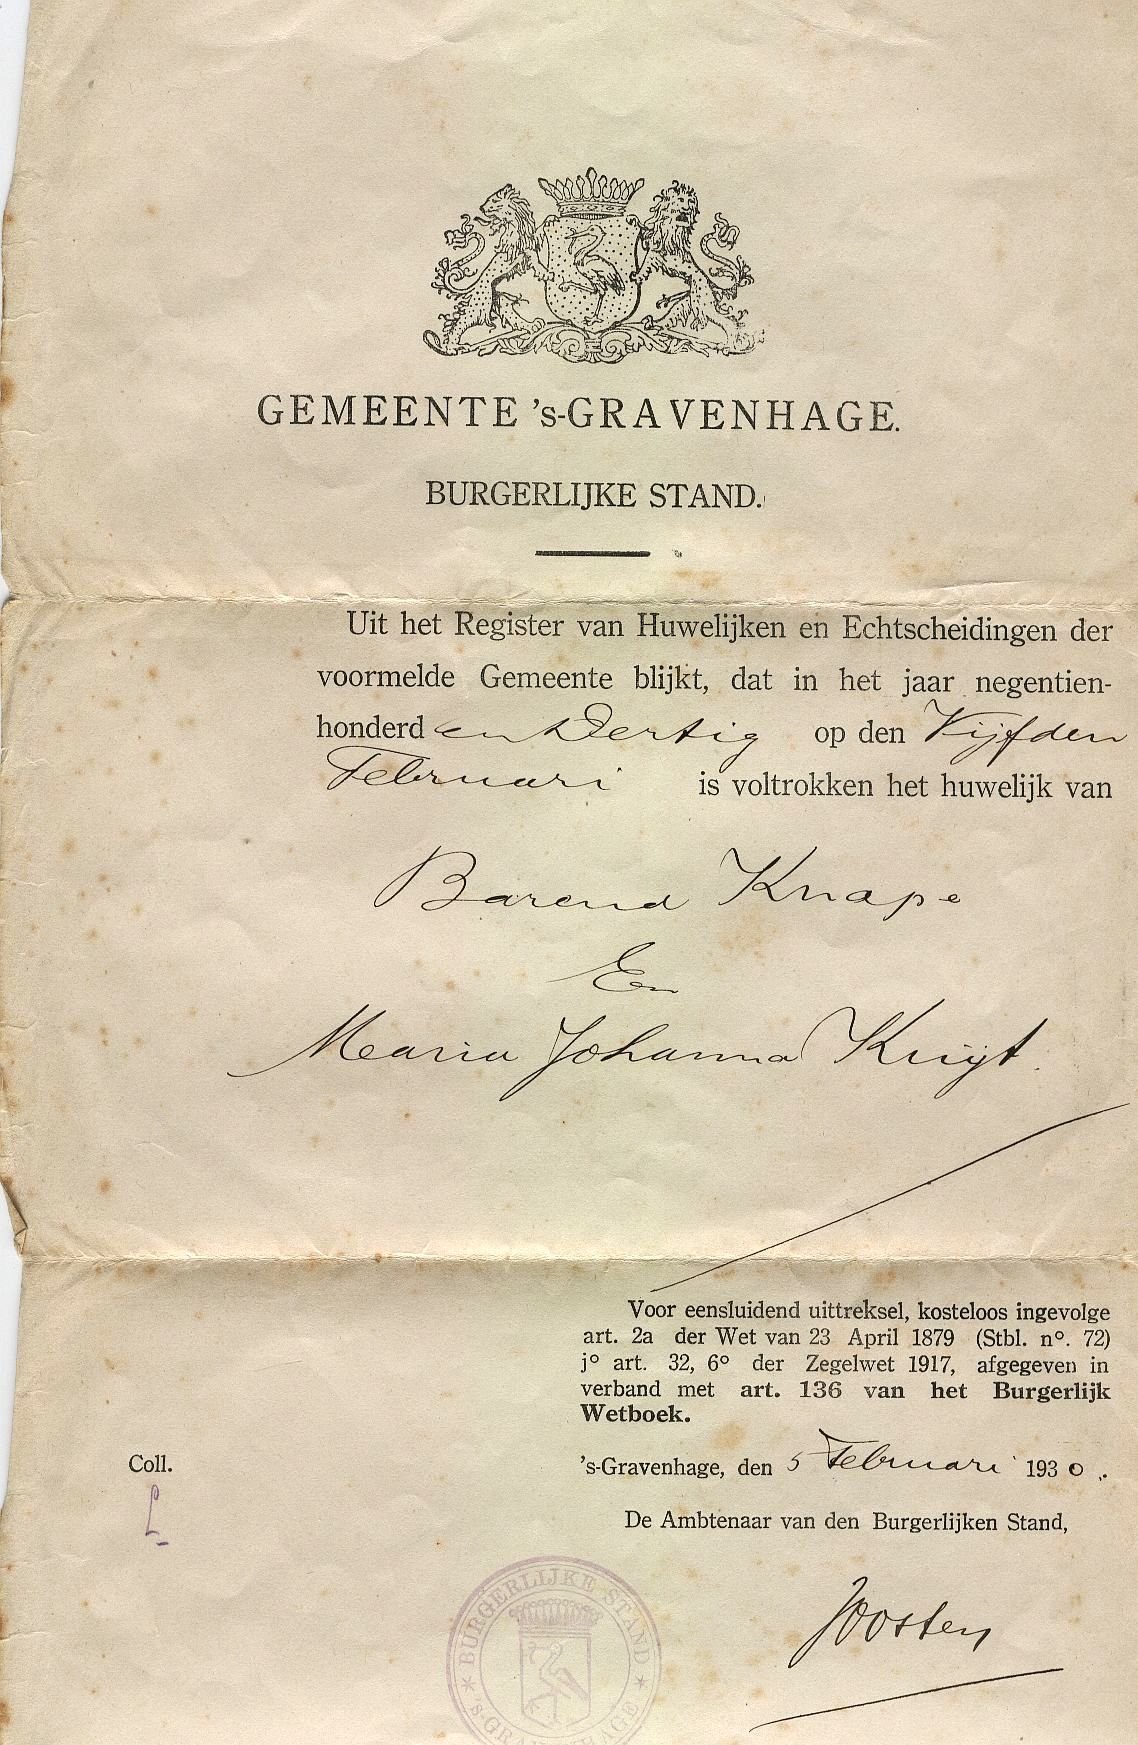 GEMEENTE 's-GRAVENHAGE.
BURGERLIJKE STAND.
Uit het Register van Huwelijken en Echtscheidingen der
voormelde Gemeente blijkt, dat in het jaar negentien-
honderd en Dertig op den Vijfden
Februari is voltrokken het huwelijk van
Barend Knape
En
Maria Johanna Kuijt.
Voor eensluidend uittreksel, kosteloos ingevolge
art. 2a der Wet van 23 April 1879 (Stbl. nº. 72)
jº art. 32, 6º der Zegelwet 1917, afgegeven in
verband met art. 136 van het Burgerlijk
Wetboek.
Coll.
's-Gravenhage, den 5 Februari 1930.
L
De Ambtenaar van den Burgerlijken Stand,
Joosten
* BURGERLIJKE STAND *
's-GRAVENHAGE